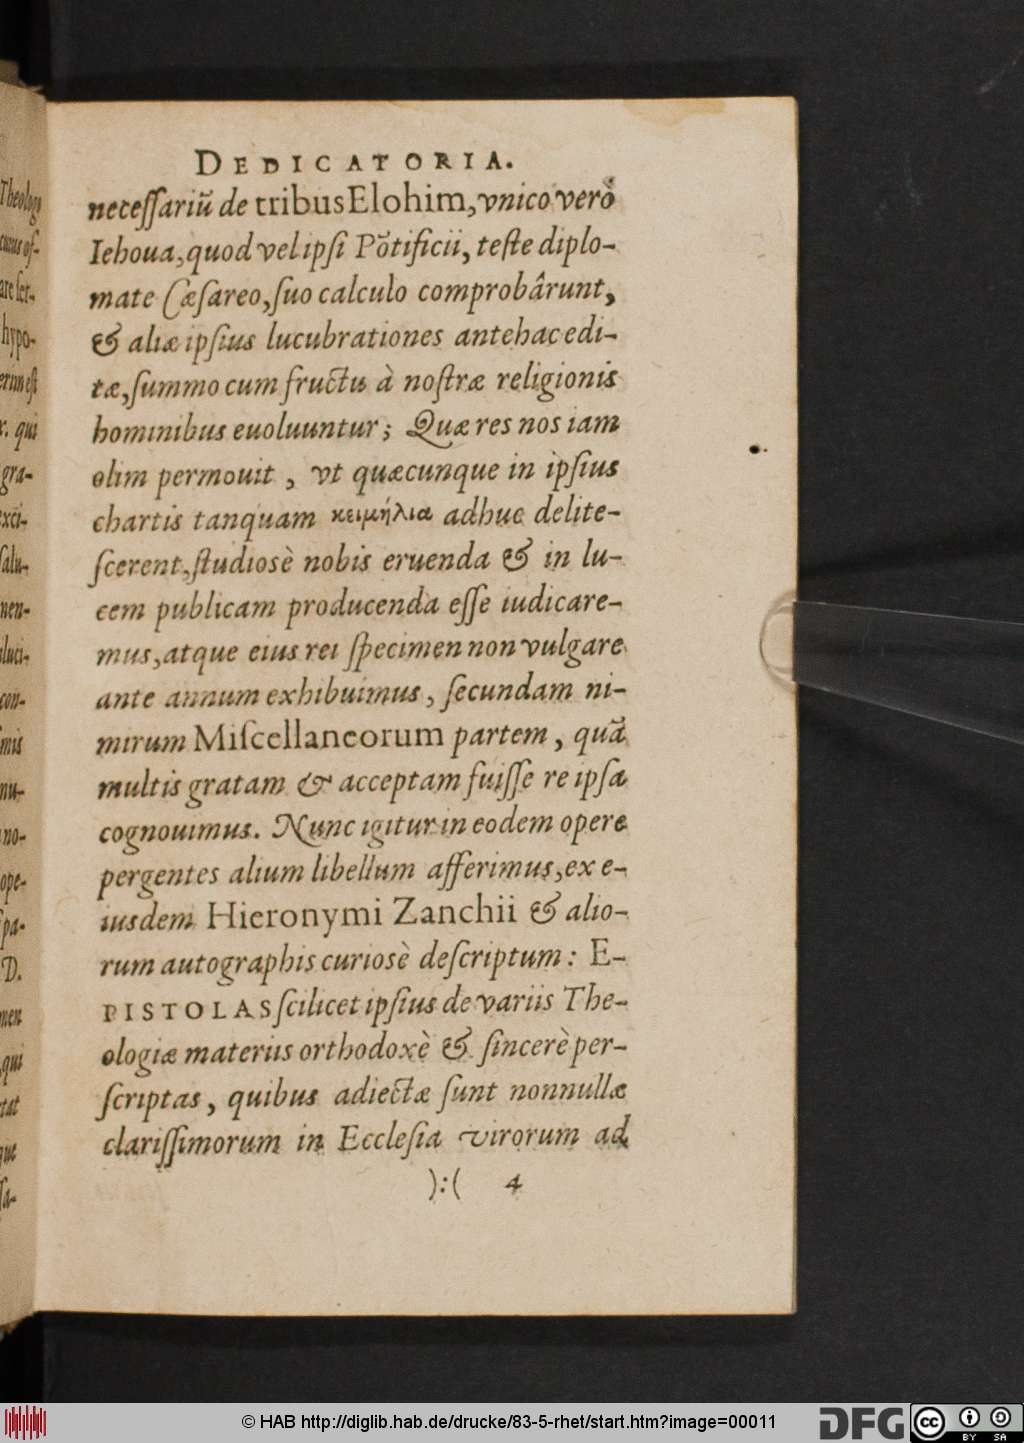 DEDICATORIA.
neceſſariũ de tribus Elohim, vnico verò
Iehoua, quod vel ipſi Põtificii, teſte diplo-
mate Cæſareo, ſuo calculo comprobârunt,
& aliæ ipſius lucubrationes antehac edi-
tæ, ſummo cum fructu à noſtræ religionis
hominibus euoluuntur; Quæ res nos iam
olim permouit, vt quæcunque in ipſius
chartis tanquam κειμήλια adhuc delite-
ſcerent, ſtudiosè nobis eruenda & in lu-
cem publicam producenda eſſe iudicare-
mus, atque eius rei ſpecimen non vulgare
ante annum exhibuimus, ſecundam ni-
mirum Miſcellaneorum partem, quã
multis gratam & acceptam fuiſſe re ipſa
cognouimus. Nunc igitur in eodem opere
pergentes alium libellum afferimus, ex e-
iusdem Hieronymi Zanchii & alio-
rum autographis curiosè deſcriptum: E-
PISTOLAS ſcilicet ipſius de variis The-
ologiæ materiis orthodoxè & ſincerè per-
ſcriptas, quibus adiectæ ſunt nonnullæ
clariſſimorum in Eccleſia virorum ad
):( 4
Theologo
cuius of-
are ſer-
hypo-
erum eſt
r. qui
gra-
exci-
ſalu-
men-
luci-
con-
mis
nu-
no-
ope-
ſpa-
D.
men
qui
tat
que
ſa-
© HAB http://diglib.hab.de/drucke/83-5-rhet/start.htm?image=00011
DFG
cc
BY SA